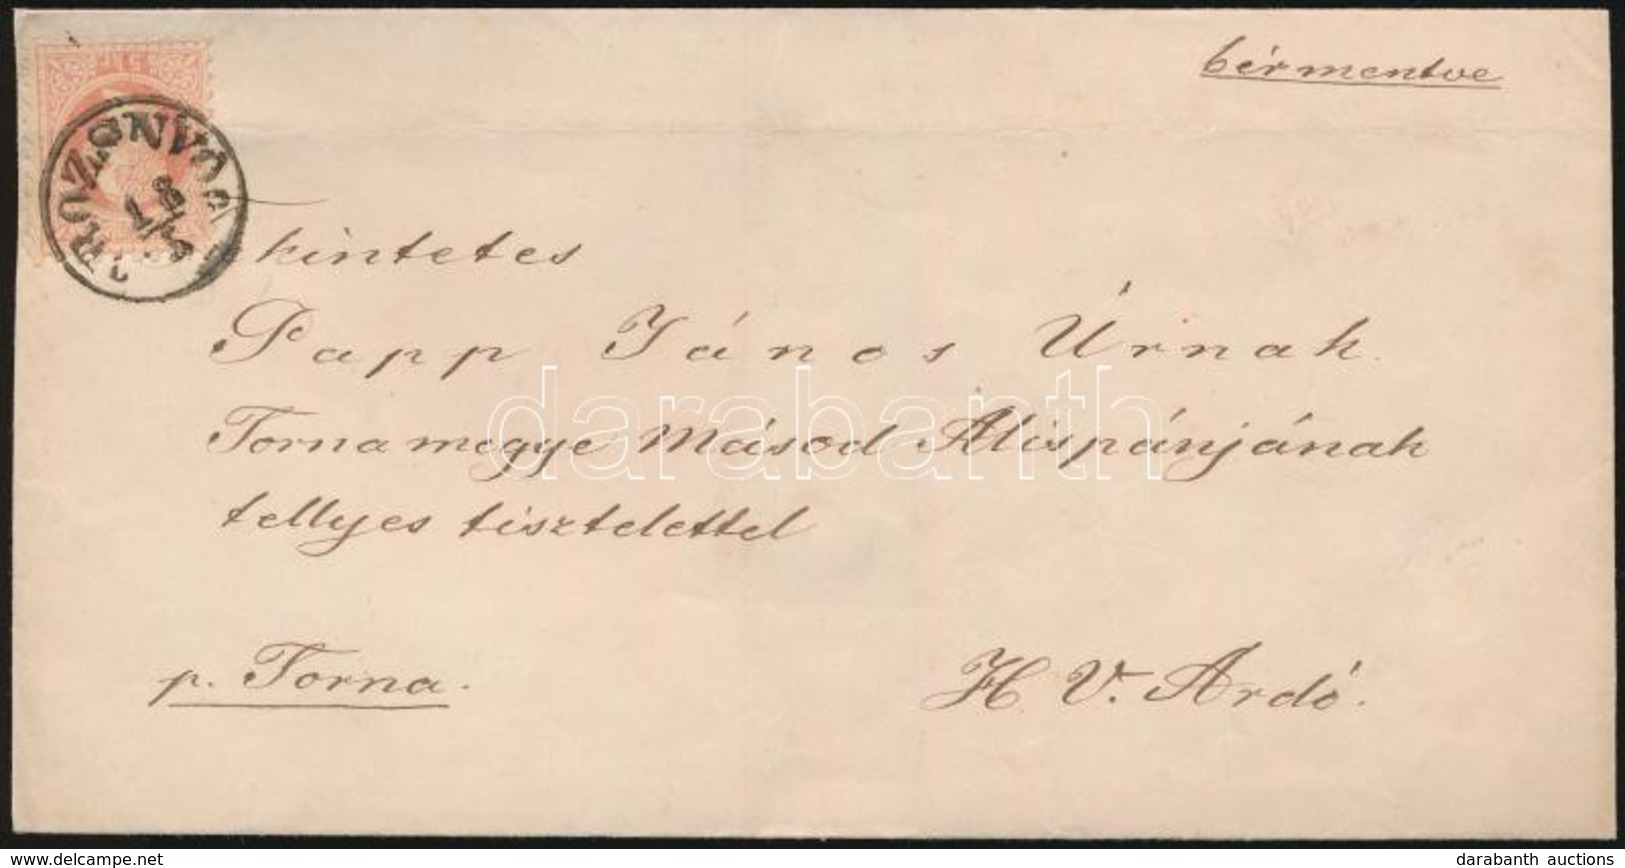 bérmentve
ROZSNYÓ
Tkintetes
Papp János Úrnak
Torna megye Másod Alispánjának
tellyes tisztelettel
p. Torna.
H. V. Ardó.
darabanth
www.delcampe.net
darabanth auctions